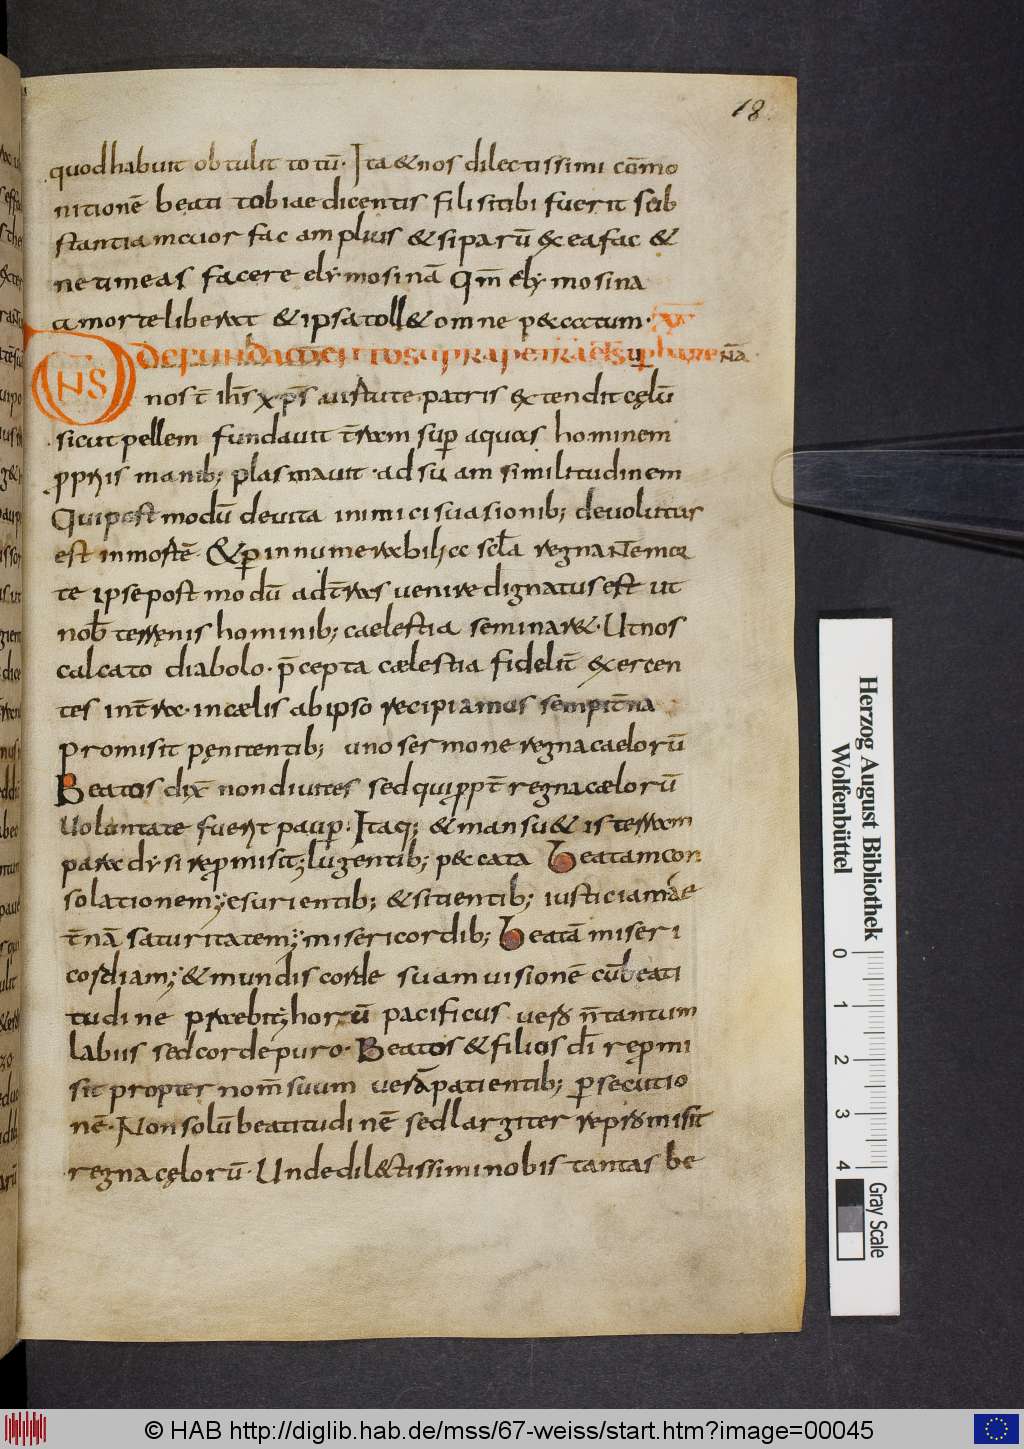 18.
quod habuit obtulit totū· Ita & nos dilectissimi cōmo
nitionē beati tobiae dicentis fili si tibi fuerit sub
stantia maior fac amplius & si parū ex ea fac &
ne timeas facere elymosinā Qm̄ elymosina
a morte liberat & ipsa toll& omne peccatum· XV
DE FUNDAMENTO SUPRA PETRA ET SUP harenā·
DNS
nost̄ ih̄s xp̄s uirtute patris extendit cęlū
sicut pellem fundauit t̄ram sup̄ aquas hominem
ppriis manib; plasmauit· ad suam similitudinem
Qui postmodū de uita inimici suasionib; deuolutus
est in mortē· & p innumerabilia scl̄a regnantē mor
te ipse postmodū ad t̄ras uenire dignatus est ut
nob̄ terrenis hominib; caelestia seminar&· Ut nos
calcato diabolo· p̄cepta caelestia fidelit̄ exercen
tes in t̄ra· in caelis ab ipso recipiamus sempit̄na
promisit pęnitentib; uno sermone regna caelorū
Beatos dix̄ non diuites sed qui ppt̄ regna caelorū
uoluntate fuer̄t paup· Itaq; & mansu&is terram
paradysi repmisit; lugentib; peccata beatam con
solationem; esurientib; & sitientib; iusticiam ae
t̄nā saturitatem; misericordib; beatā miseri
cordiam; & mundis corde suam uisionē cū beati
tudine praebit; horū pacificus uero n̄ tantum
labiis sed corde puro· Beatos & filios dī repmi
sit propter nom̄ suum uerā patientib; psecutio
nē· Non solū beatitudinē sed largiter repromisit
regna cęlorū· Unde dil&tissimi nobis tantas be
Herzog August Bibliothek
Wolfenbüttel
0 1 2 3 4
Gray Scale
© HAB http://diglib.hab.de/mss/67-weiss/start.htm?image=00045